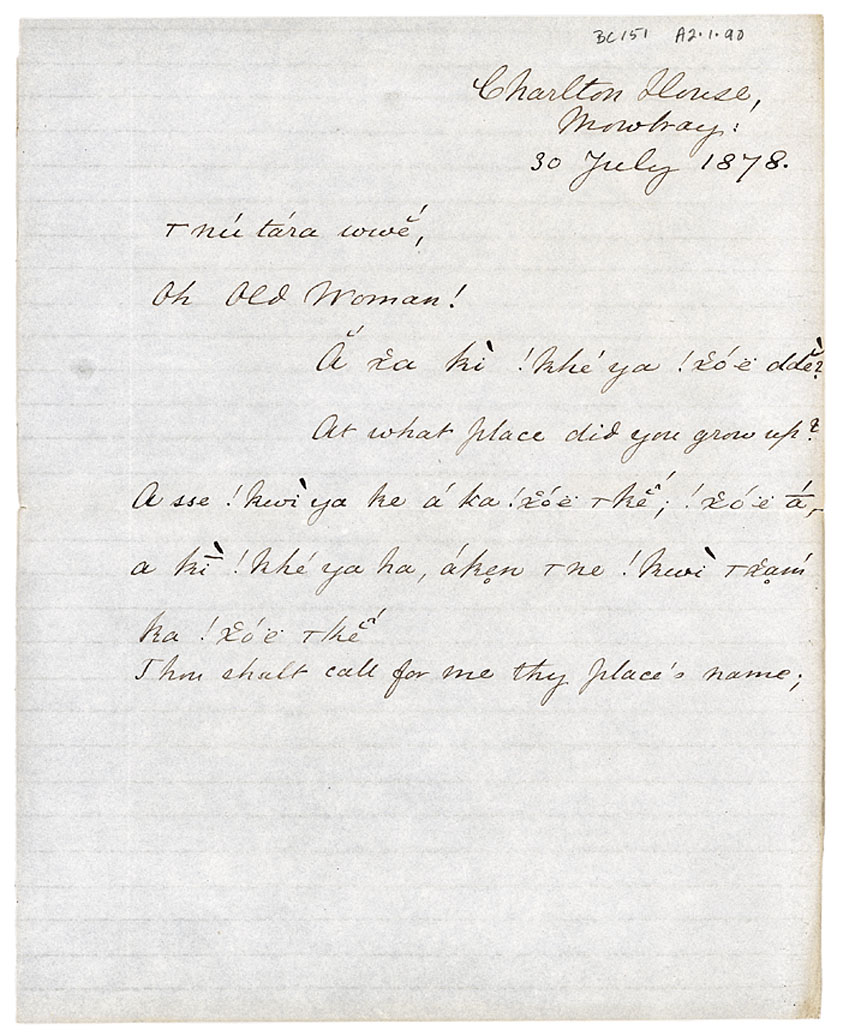 BC151 A2.1.90
Charlton House,
Mowbray:
30 July 1878.
⊤nú tára wwé̌,
Oh Old Woman!
Ǎ́ x̌a kì !khé ya !x̌óë ddè̌?
At what place did you grow up?
A sse !kwì ya ke á ka !x̌óë ⊤kě̃́; !x̌óë ā́,
a kī̀ !khé ya ha, áken̥ ⊤ne !kwì ⊤x̌ạḿ
ka !x̌óë ⊤kě̃́
Thou shalt call for me thy place's name;